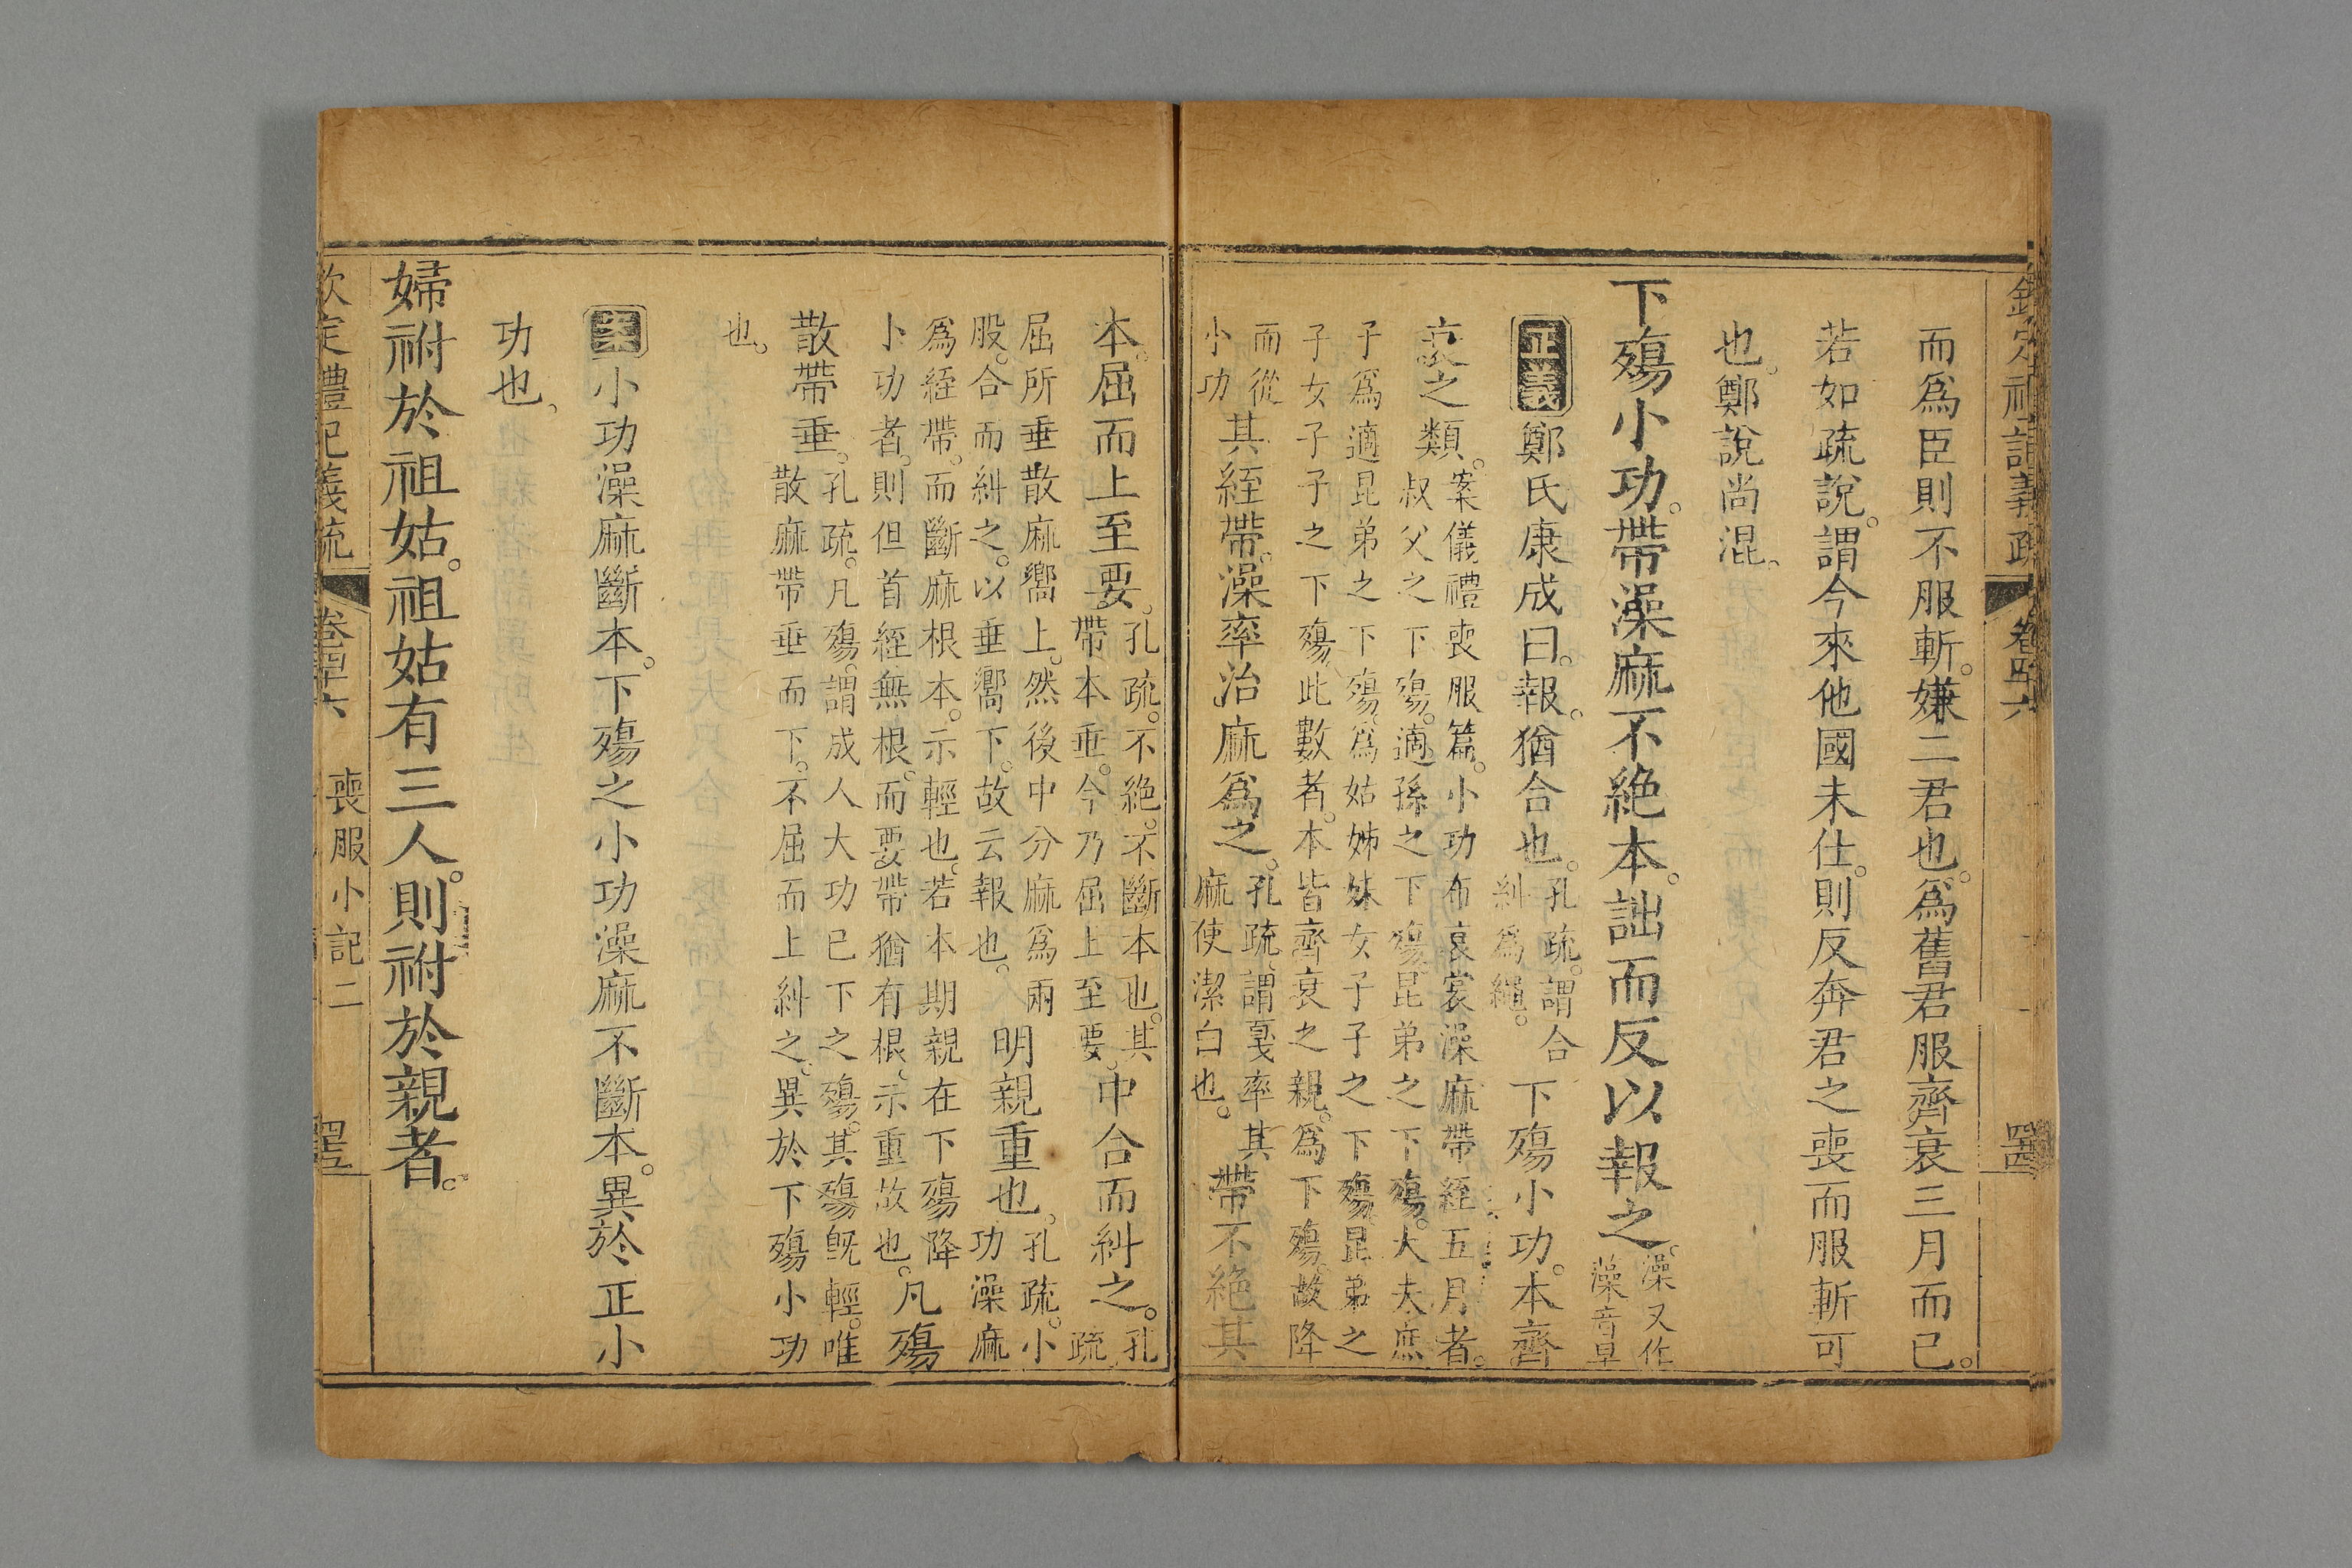 欽定禮記義疏 卷四十六 四十四
而爲臣則不服斬。嫌二君也。爲舊君服齊衰三月而已。
若如疏說。謂今來他國未仕。則反奔君之喪而服斬可
也。鄭說尚混。
下殤小功。帶澡麻不絶本。詘而反以報之。
澡又作
藻音早
正義 鄭氏康成曰。報。猶合也。
孔疏。謂合
糾爲繩。
下殤小功。本齊
衰之類。
案儀禮喪服篇。小功布衰裳澡麻帶絰五月者。
叔父之下殤。適孫之下殤。昆弟之下殤。大夫庶
子爲適昆弟之下殤。爲姑姊妹女子子之下殤。昆弟之
子女子子之下殤。此數者。本皆齊衰之親。爲下殤。故降
而從
小功
其絰帶。澡率治麻爲之。
孔疏。謂戛率其
麻使潔白也。
帶不絶其
本。屈而上至要。
孔疏。不絶。不斷本也。其
帶本垂。今乃屈上至要。
中合而糾之。
孔
疏
屈所垂散麻嚮上。然後中分麻爲兩
股。合而糾之。以垂嚮下。故云報也。
明親重也。
孔疏。小
功澡麻
爲絰帶。而斷麻根本。示輕也。若本期親在下殤降
卜功者。則但首絰無根。而要帶猶有根。示重故也。
凡殤
散帶垂。
孔疏。凡殤。謂成人大功已下之殤。其殤旣輕。唯
散麻帶垂而下。不屈而上糾之。異於下殤小功
也。
案 小功澡麻斷本。下殤之小功澡麻不斷本。異於正小
功也。
婦祔於祖姑。祖姑有三人。則祔於親者。
欽定禮記義疏 卷四十六 喪服小記二 四十五